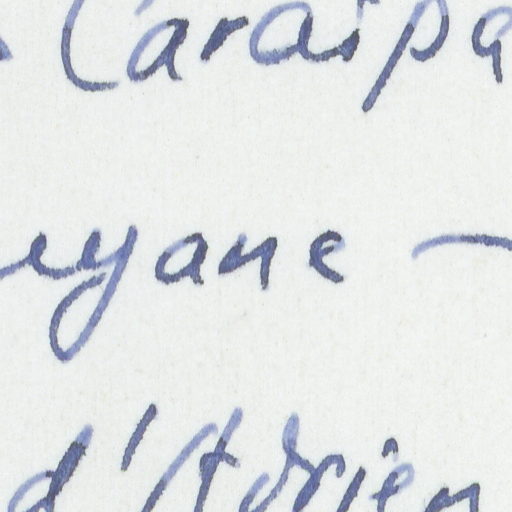 Caraipa
uyane —
d'Adrien